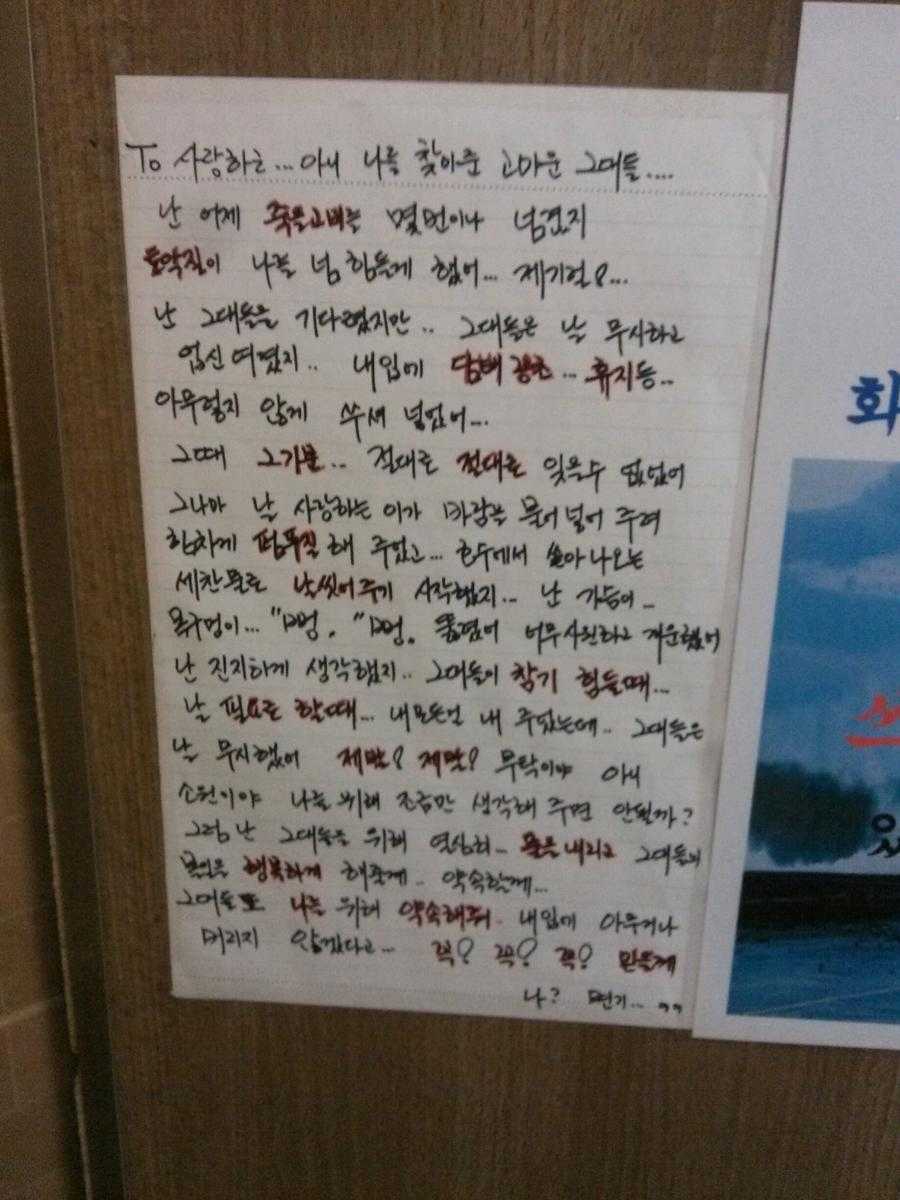 To 사랑하는... 아니 나를 찾아준 고마운 그대들....
난 어제 죽을고비를 몇번이나 넘겼지
토악질이 나를 넘 힘들게 했어... 제기럴8...
난 그대들을 기다렸지만.. 그대들은 날 무시하고
업신여겼지.. 내입에 담배꽁초... 휴지등..
아무렇지 않게 쑤셔 넣었어...
그때 그기분... 절대로 절대로 잊을수 없었어
그나마 날 사랑하는 이가 바람을 불어 넣어 주려
힘차게 펌푸질 해 주었고... 호수에서 쏟아나오는
세찬물로 날씻어주기 시작했지... 난 가능이..
목구멍이... "뻥. "뻥. 뚫렸어 너무시원하고 개운했어
난 진지하게 생각했지.. 그대들이 참기 힘들때...
날 필요로 할때... 내모든걸 내 주었는데.. 그대들은
날 무시했어 제발? 제발? 부탁이야 아니
소원이야 나를 위해 조금만 생각해 주면 안될까?
그럼 난 그대들을 위해 열심히... 물을내리고 그대들의
볼일을 행복하게 해줄게.. 약속할께...
그대들또 나를 위해 약속해줘. 내입에 아무거나
버리지 않겠다고... 꼭? 꼭? 꼭? 믿을께
나? 변기... ㅋㅋ
화
있